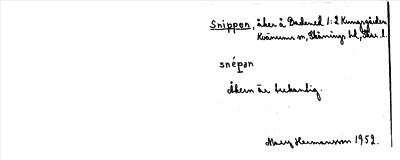 Snippen, åker å Badened 1:2 Kungsgården
Kvänums sn, Skånings hd, Skar. l.
snépan
Åkern är trekantig.
Mary Hermansson 1952.